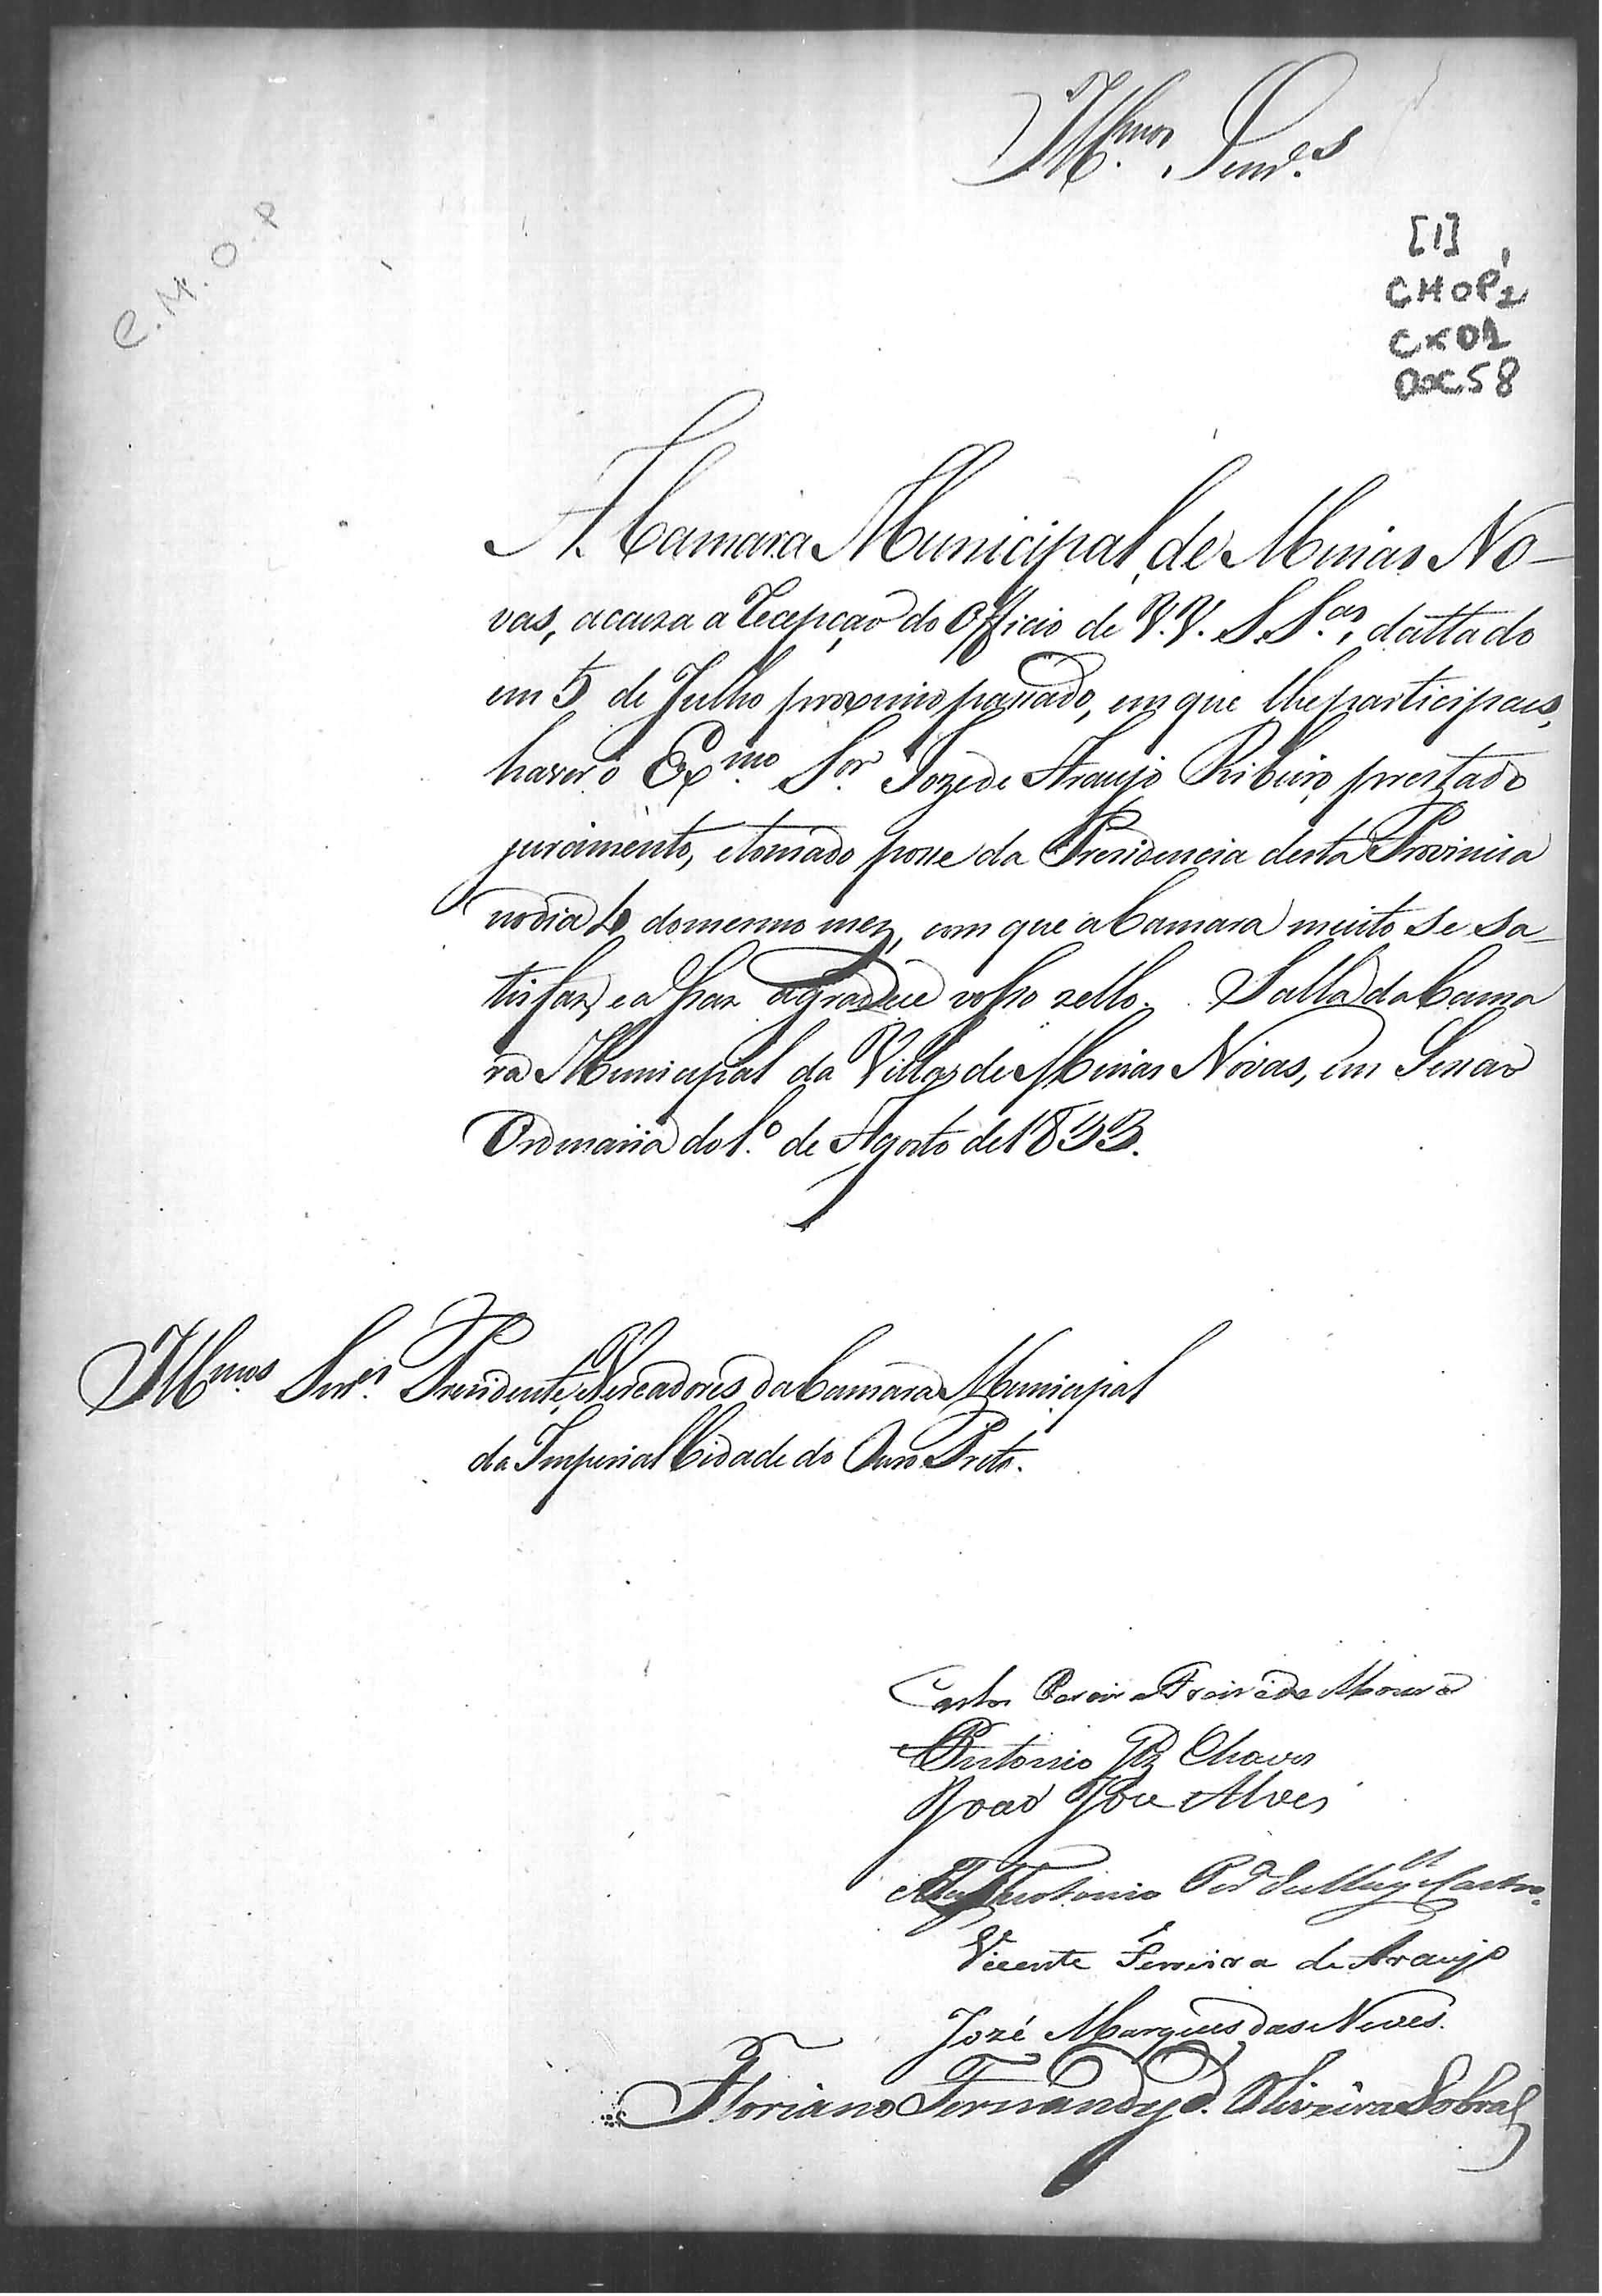 Illmos. Senrs.
C.M.O.P
[1]
CMOP2
CX01
DOC58
A Camara Municipal de Minas No-
vas, acaza a recepção do Officio de V.V. S.Sas., dattado
em 5 de Julho proximo passado, em que lhe participaes,
haver o Exmo. Sor. Joze de Araujo Ribeiro prestado
juramento, e tomado posse da Presidencia desta Provincia
no dia do mesmo mez, com que a Camara muito se sa-
tisfaz, e agradece vosso zello. Salla da Cama
ra Municipal da Villa de Minas Novas, em Sessão
Ordinaria do 1.º de Agosto de 1833.
Illmos. Senrs. Presidente, e Vereadores da Camara Municipal
da Imperial Cidade do Ouro Preto.
Carlos Pereira Freire de Moura
Antonio Chaves
João Jose Alves
Teotonio Castro.
Vicente Ferreira de Araujo
Jozé Marques das Neves.
Floriano Fernandes d. Oliveira Sobral